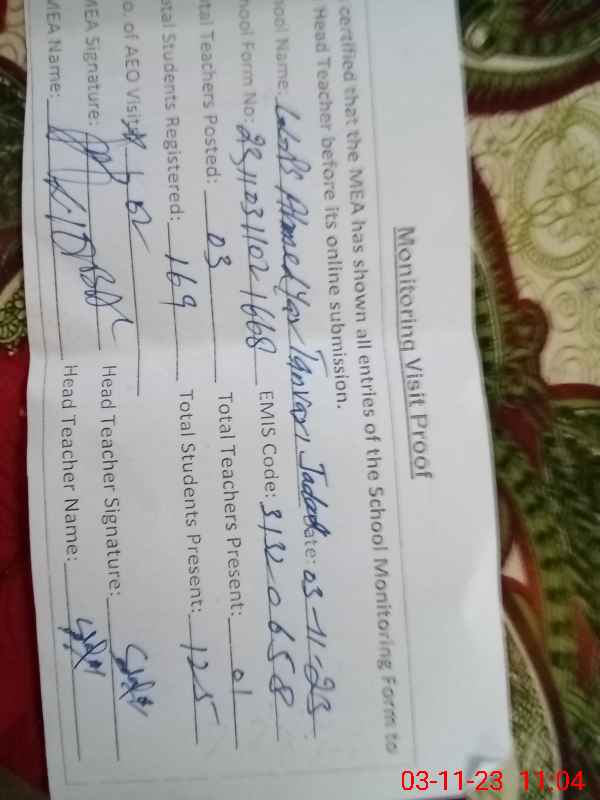 Monitoring Visit Proof
certified that the MEA has shown all entries of the School Monitoring Form to
Head Teacher before its online submission.
ool Name: Ahmed Yar Tanvari ate: 03-11-23
hool Form No: 23110311021668 EMIS Code: 31320658
tal Teachers Posted: 03 Total Teachers Present: 01
otal Students Registered: 169 Total Students Present: 125
o. of AEO Visit 02
MEA Signature: Head Teacher Signature:
MEA Name: Head Teacher Name:
03-11-23 11:04